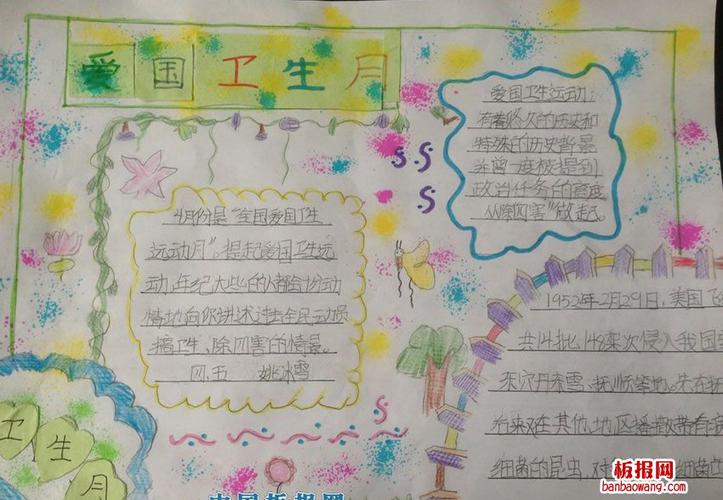 爱国卫生月
爱国卫生运动：
有着悠久的历史和
特殊的历史背景
并曾一度被提到
政治任务的高度
从"除四害"做起。
4月份是"全国爱国卫生
运动月"。提起爱国卫生运
动,年纪大些的人都会份动
情地向你讲述过去全民动员
搞卫生、除四害的情景。
四.五 姚冰雪
1952年2月29日,美国飞
共14批,148架次侵入我国
东、抚顺等地。先在抚
后来又在其他地区播散带有
细菌的昆虫,对
卫生月
板报网
banbaowang.com
中国板报网